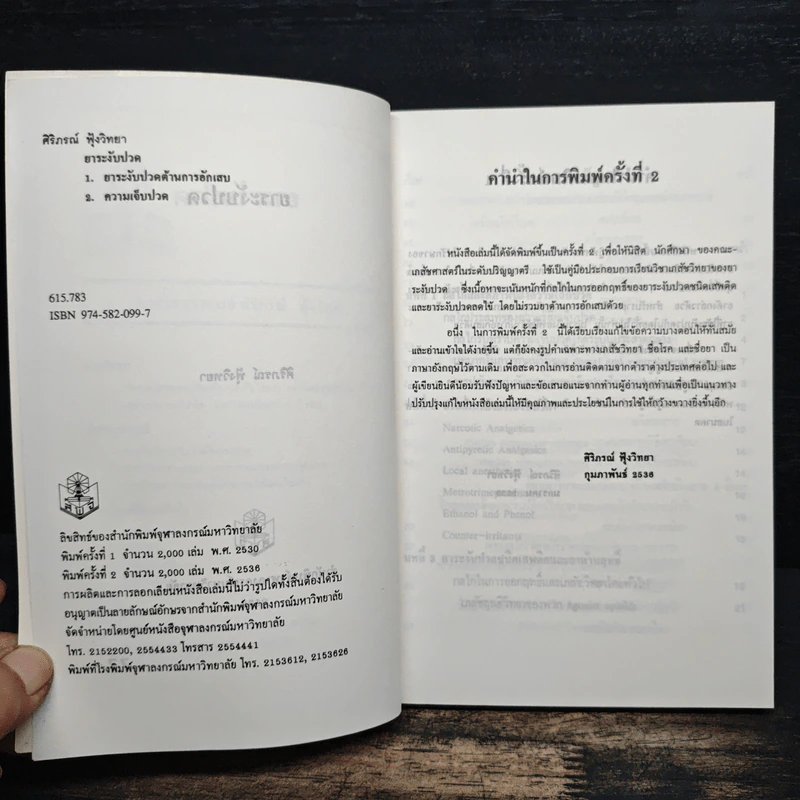 ศิริภรณ์ ฟุ้งวิทยา
ยาระงับปวด
1. ยาระงับปวดต้านการอักเสบ
2. ความเจ็บปวด
615.783
ISBN 974-582-099-7
ลิขสิทธิ์ของสำนักพิมพ์จุฬาลงกรณ์มหาวิทยาลัย
พิมพ์ครั้งที่ 1 จำนวน 2,000 เล่ม พ.ศ. 2530
พิมพ์ครั้งที่ 2 จำนวน 2,000 เล่ม พ.ศ. 2536
การผลิตและการลอกเลียนหนังสือเล่มนี้ไม่ว่ารูปใดทั้งสิ้นต้องได้รับ
อนุญาตเป็นลายลักษณ์อักษรจากสำนักพิมพ์จุฬาลงกรณ์มหาวิทยาลัย
จัดจำหน่ายโดยศูนย์หนังสือจุฬาลงกรณ์มหาวิทยาลัย
โทร. 2152200, 2554433 โทรสาร 2554441
พิมพ์ที่โรงพิมพ์จุฬาลงกรณ์มหาวิทยาลัย โทร. 2153612, 2153626
คำนำในการพิมพ์ครั้งที่ 2
หนังสือเล่มนี้ได้จัดพิมพ์ขึ้นเป็นครั้งที่ 2 เพื่อให้นิสิต นักศึกษา ของคณะ-
เภสัชศาสตร์ในระดับปริญญาตรี ใช้เป็นคู่มือประกอบการเรียนวิชาเภสัชวิทยาของยา
ระงับปวด ซึ่งเนื้อหาจะเน้นหนักที่กลไกในการออกฤทธิ์ของยาระงับปวดชนิดเสพติด
และยาระงับปวดลดไข้ โดยไม่รวมยาต้านการอักเสบด้วย
อนึ่ง ในการพิมพ์ครั้งที่ 2 นี้ได้เรียบเรียงแก้ไขข้อความบางตอนให้ทันสมัย
และอ่านเข้าใจได้ง่ายขึ้น แต่ก็ยังคงรูปคำเฉพาะทางเภสัชวิทยา ชื่อโรค และชื่อยา เป็น
ภาษาอังกฤษไว้ตามเดิม เพื่อสะดวกในการอ่านติดตามจากตำราต่างประเทศต่อไป และ
ผู้เขียนยินดีน้อมรับฟังปัญหาและข้อเสนอแนะจากท่านผู้อ่านทุกท่านเพื่อเป็นแนวทาง
ปรับปรุงแก้ไขหนังสือเล่มนี้ให้มีคุณภาพและประโยชน์ในการใช้ให้กว้างขวางยิ่งขึ้นอีก
ศิริภรณ์ ฟุ้งวิทยา
กุมภาพันธ์ 2536